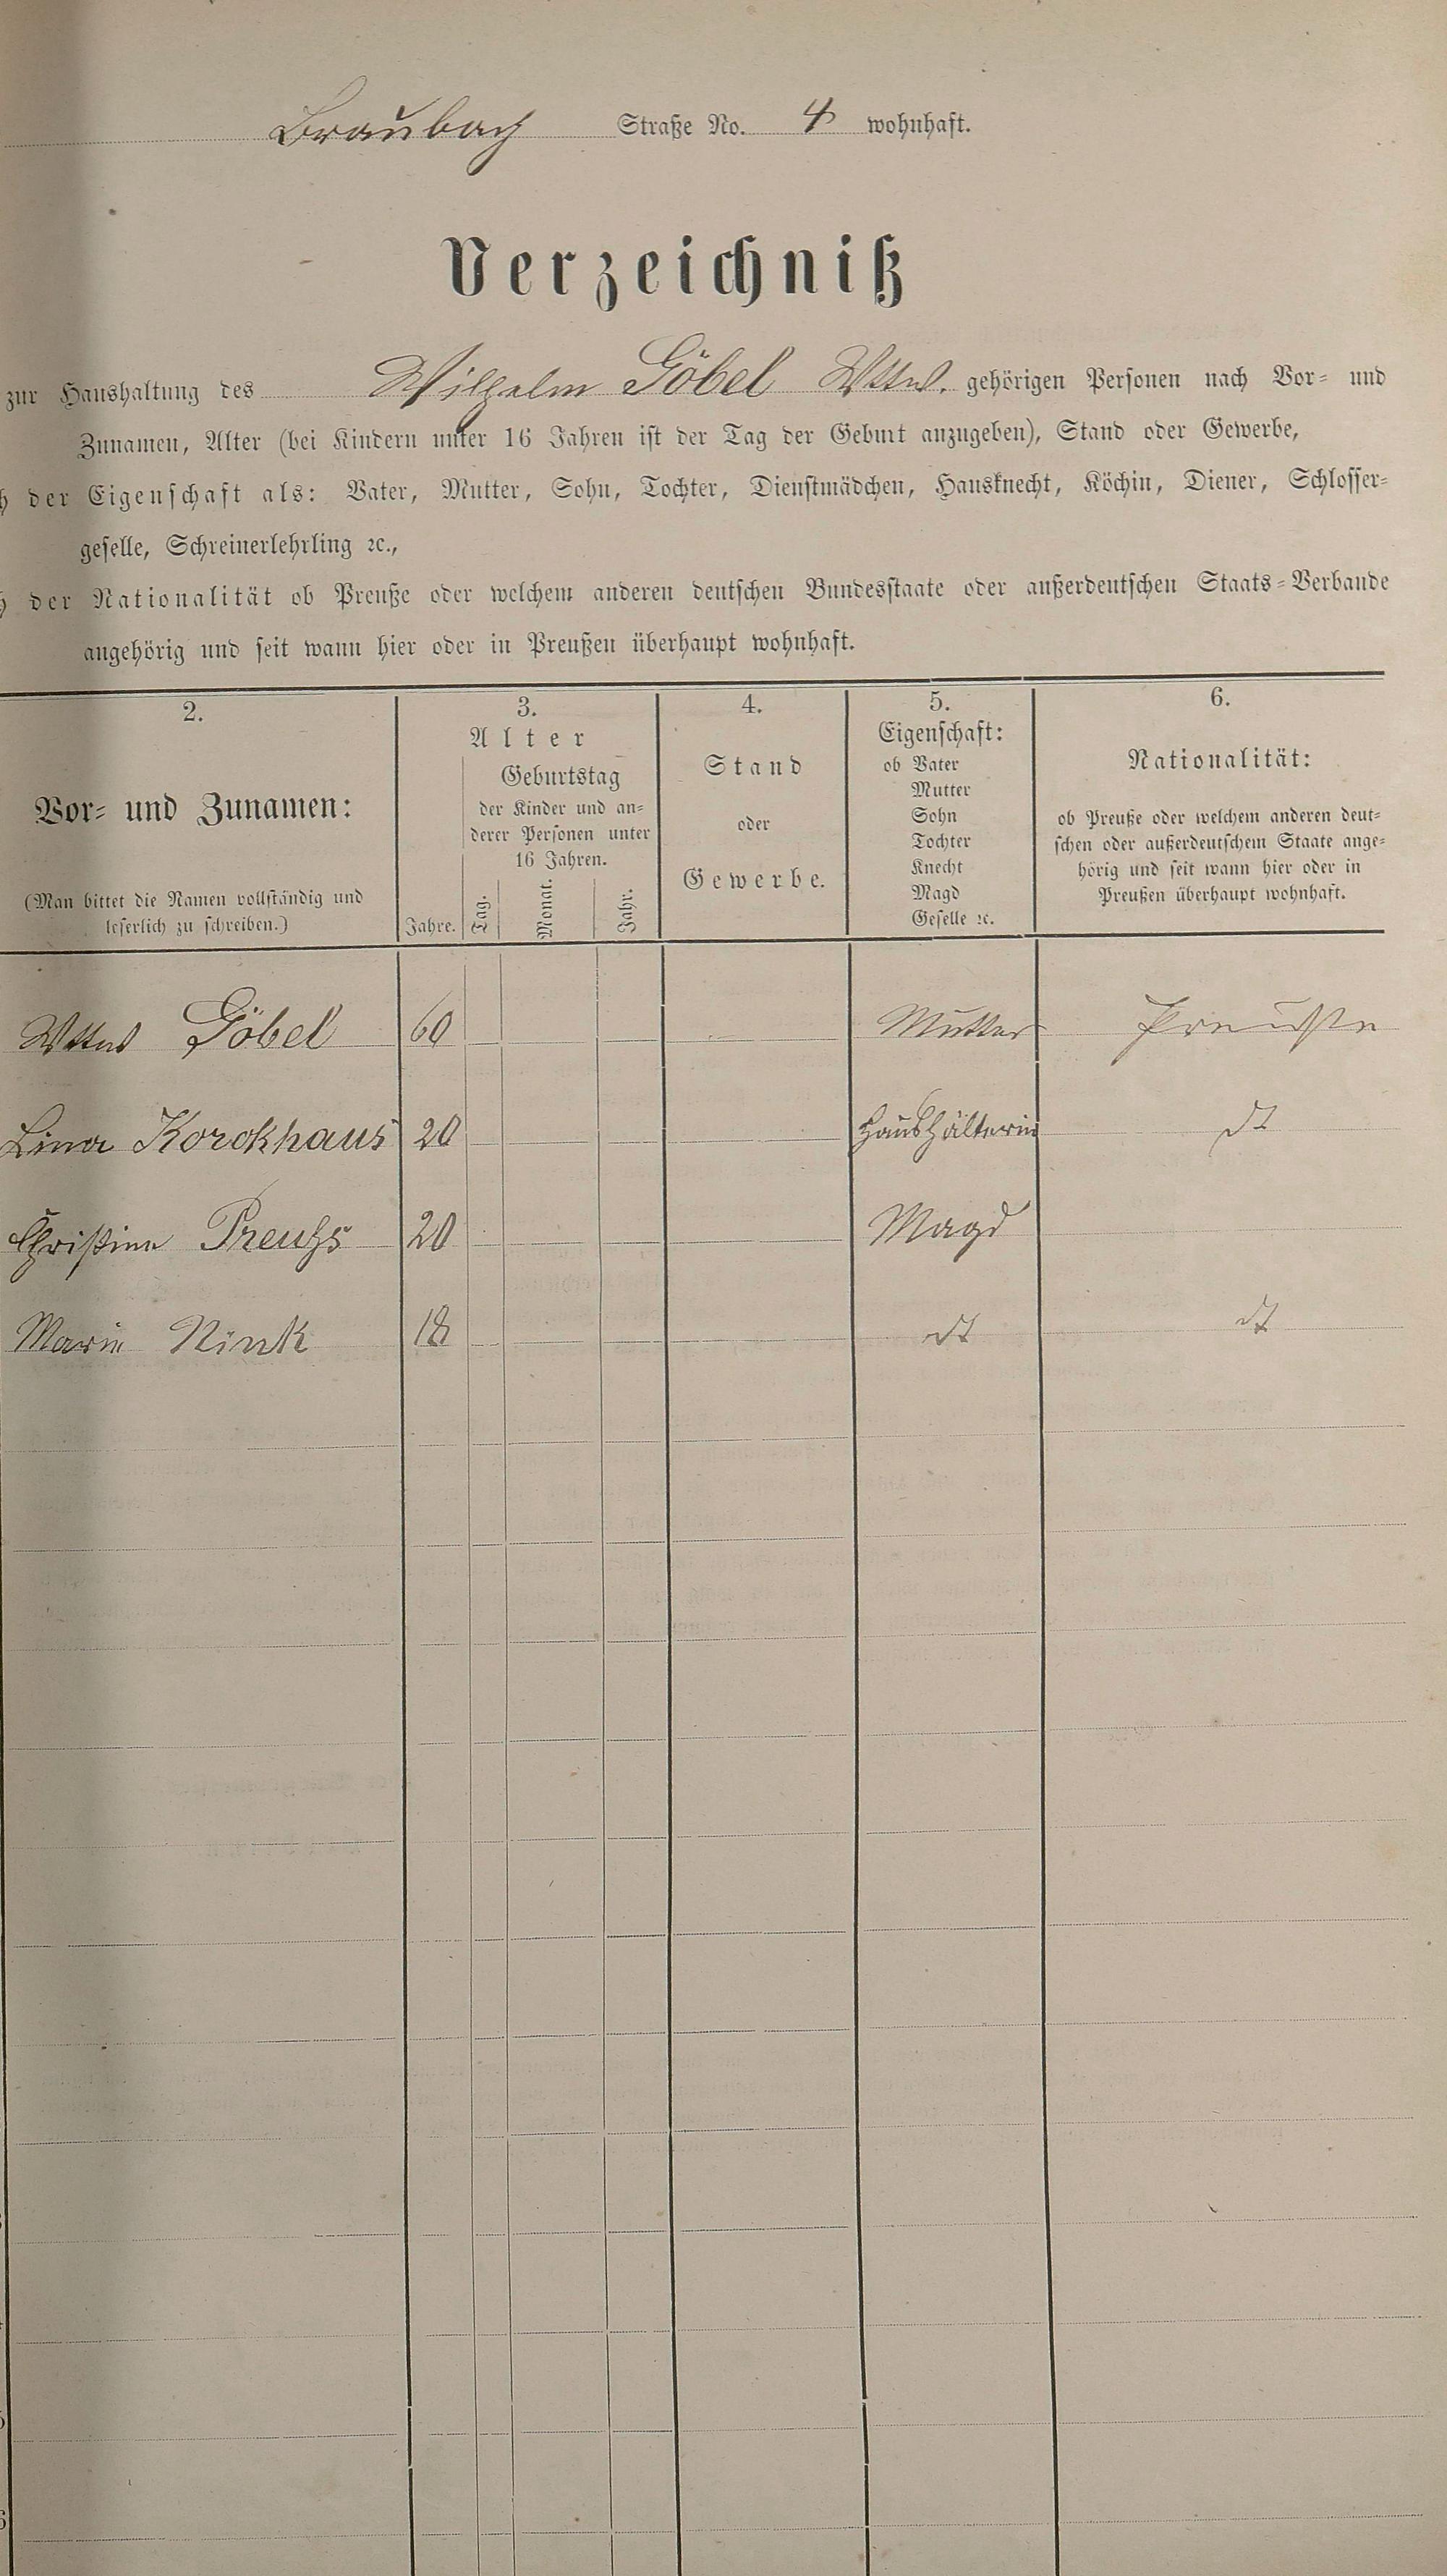 Braubach Straße No. 4 wohnhaft.
Verzeichniß
zur Haushaltung des Wilhelm Göbel Wttw. gehörigen Personen nach Vor- und
Zunamen, Alter (bei Kindern unter 16 Jahren ist der Tag der Geburt anzugeben), Stand oder Gewerbe,
h der Eigenschaft als: Vater, Mutter, Sohn, Tochter, Dienstmädchen, Hausknecht, Köchin, Diener, Schlosser-
geselle, Schreinerlehrling ꝛc.,
h der Nationalität ob Preuße oder welchem anderen deutschen Bundesstaate oder außerdeutschen Staats-Verbande
angehörig und seit wann hier oder in Preußen überhaupt wohnhaft.
2.
Vor- und Zunamen:
(Man bittet die Namen vollständig und
leserlich zu schreiben.)
3.
Alter
Geburtstag
der Kinder und an-
derer Personen unter
16 Jahren.
Jahre. Tag. Monat. Jahr.
4.
Stand
oder
Gewerbe.
5.
Eigenschaft:
ob Vater
Mutter
Sohn
Tochter
Knecht
Magd
Geselle ꝛc.
6.
Nationalität:
ob Preuße oder welchem anderen deut-
schen oder außerdeutschem Staate ange-
hörig und seit wann hier oder in
Preußen überhaupt wohnhaft.
Wttw Göbel 60 Mutter Preuße
Lina Korckhaus 20 Haushälterin dt
Christine Preuhs 20 Magd
Marie Nink 18 dt dt